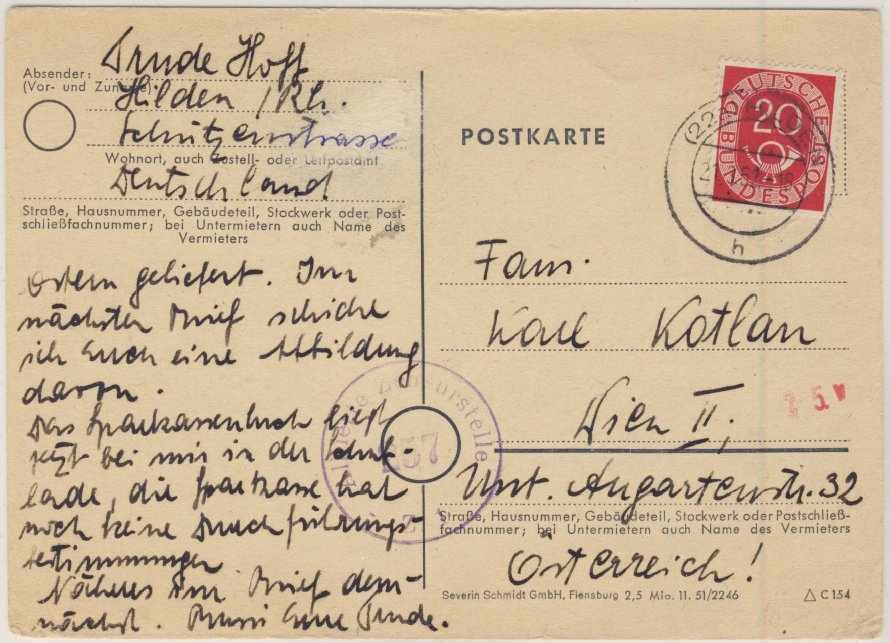 Trude Hoff
Absender:
(Vor- und Zuname)
Hilden /Rh.
Schützenstrasse
Wohnort, auch Zustell- oder Leitpostamt
Deutschland
Straße, Hausnummer, Gebäudeteil, Stockwerk oder Post-
schließfachnummer; bei Untermietern auch Name des
Vermieters
Ostern geliefert. Im
nächsten Brief schicke
ich Euch eine Abbildung
davon.
Das Sparkassenbuch liegt
jetzt bei mir in der Schub-
lade, die Sparkasse hat
noch keine Durchführungs-
bestimmungen
Näheres im Brief dem-
nächst. Bussi Eure Trude.
POSTKARTE
DEUTSCHE
BUNDESPOST
20
(22
h
Fam.
Karl Kotlan
Wien II,
Unt. Augartenstr. 32
Straße, Hausnummer, Gebäudeteil, Stockwerk oder Postschließ-
fachnummer; bei Untermietern auch Name des Vermieters
Österreich!
Zensurstelle
257
Severin Schmidt GmbH, Flensburg 2,5 Mio. 11. 51/2246
C 154